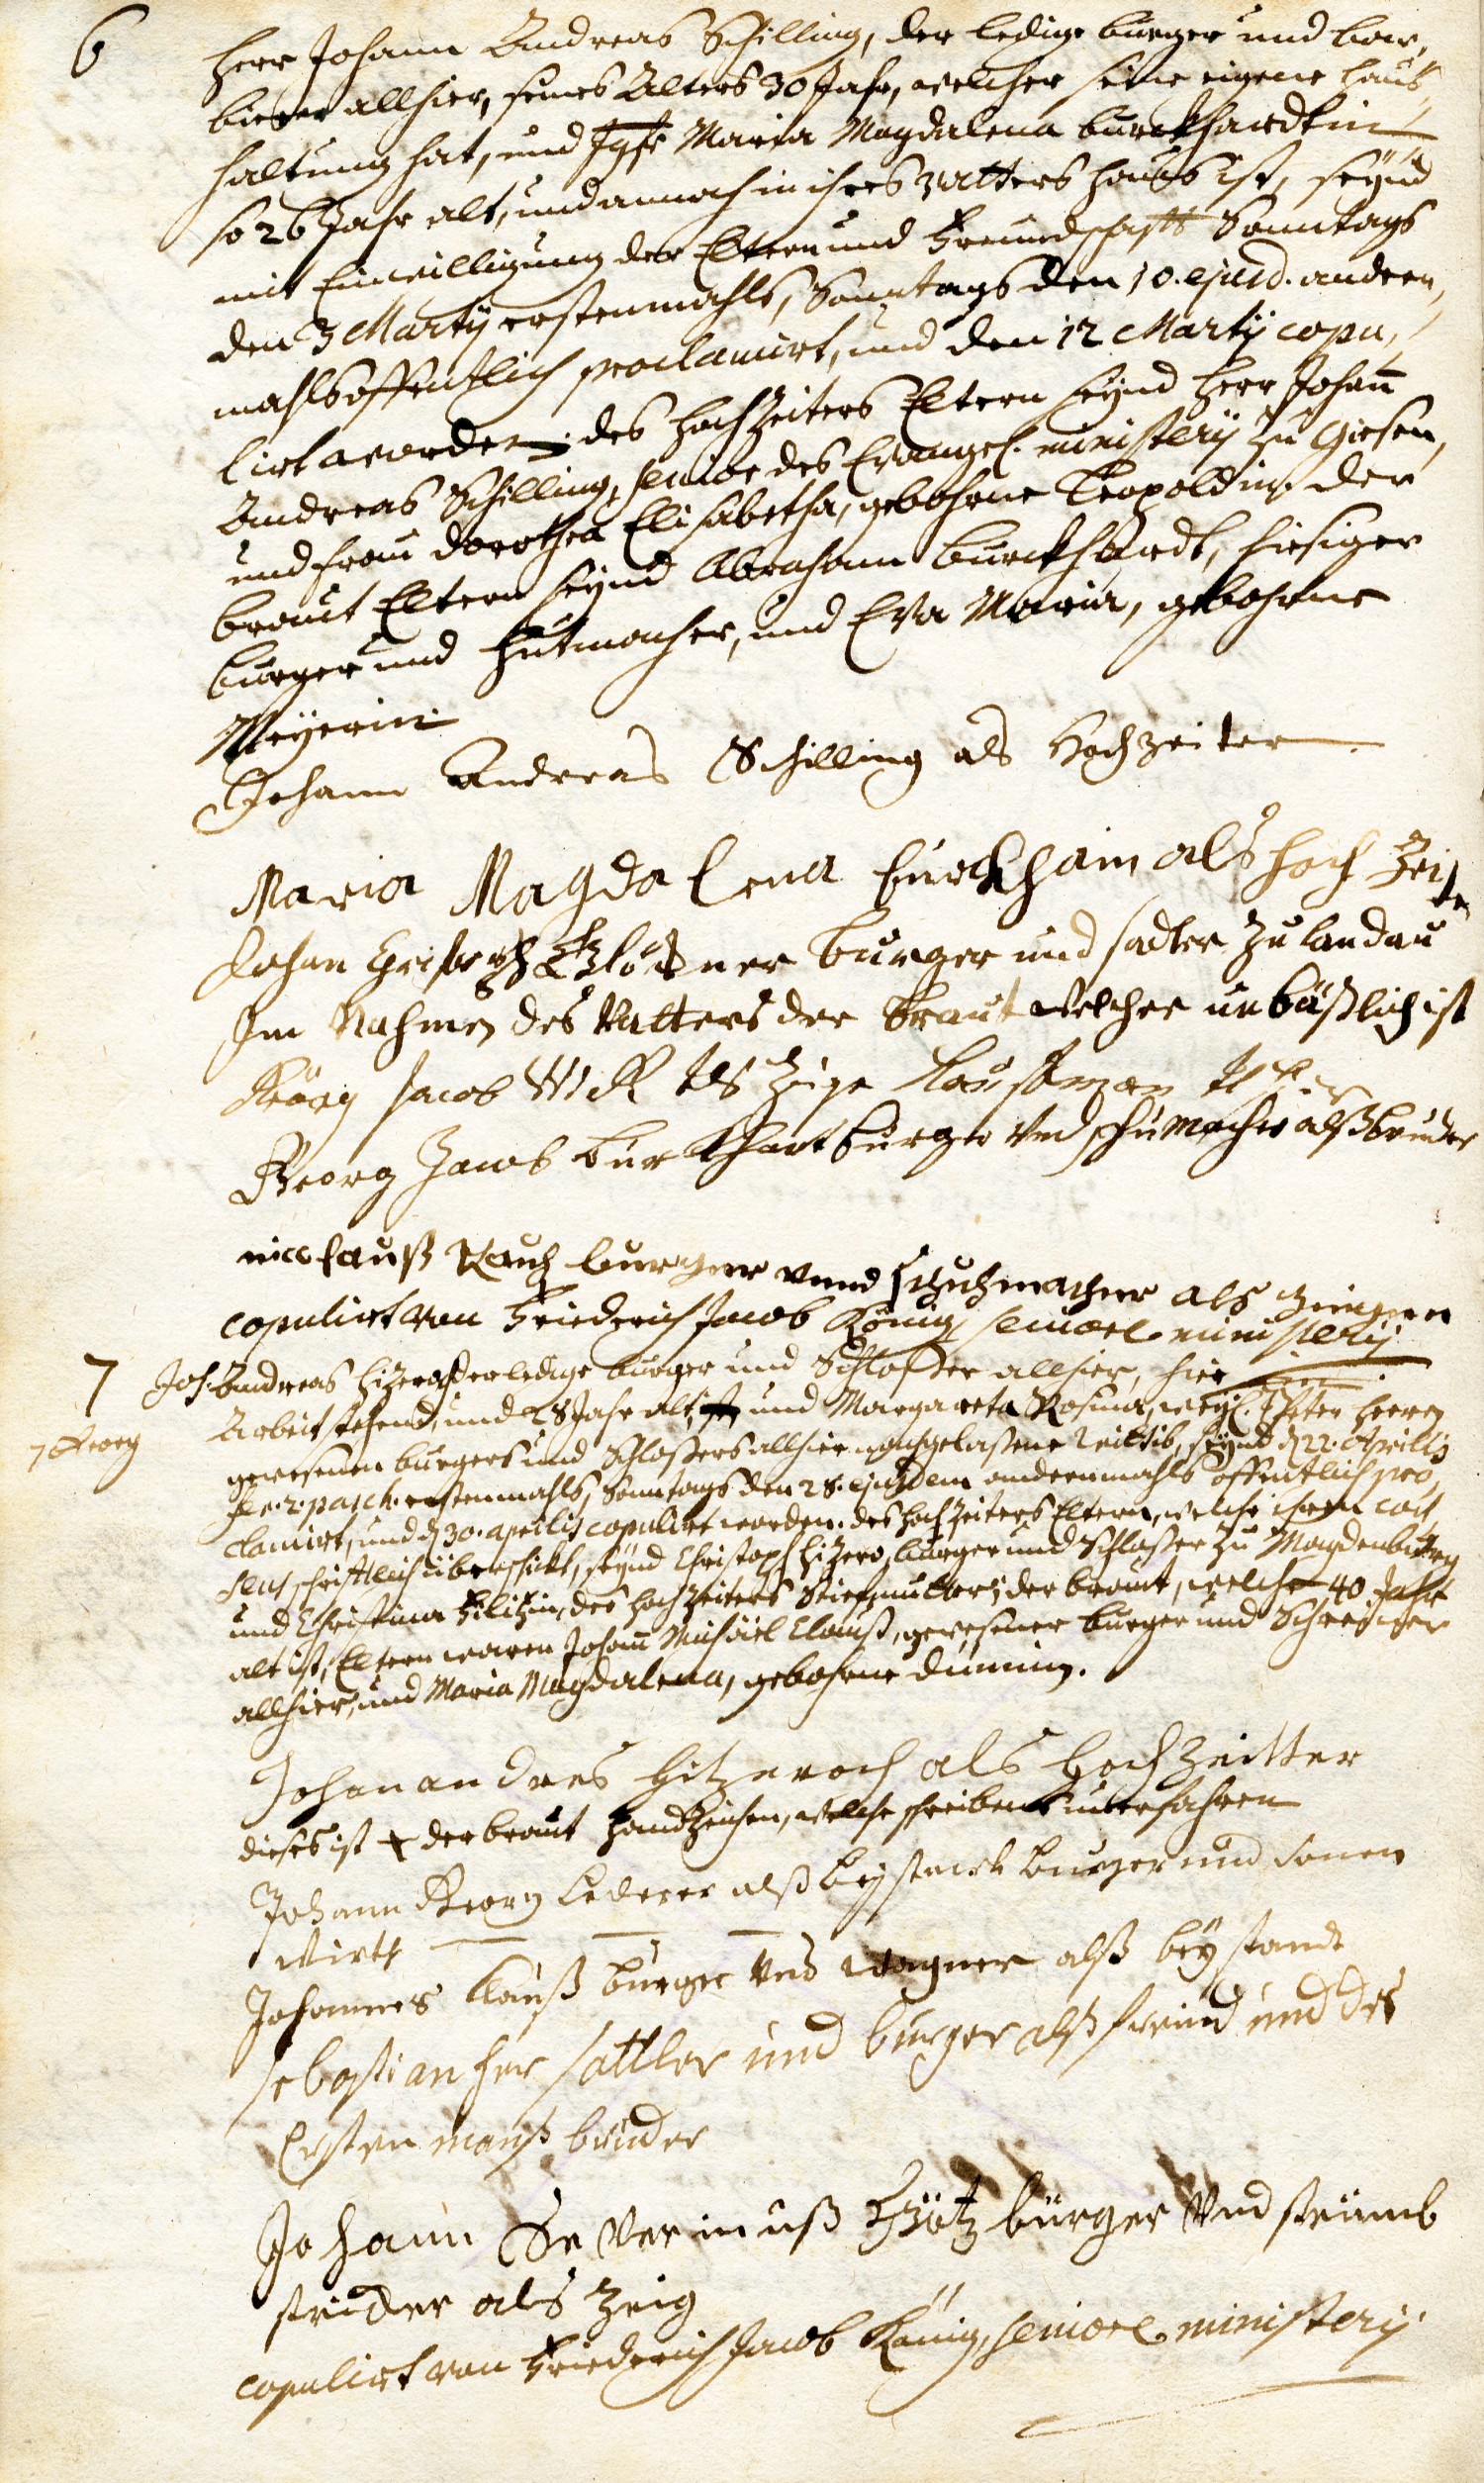 6 Herr Johann Andreas Schilling, der ledige burger und bar„
birer allhier, seines Alters 30 Jahr, welcher seine eigene hauß„
haltung hat, und Jgfr Maria Magdalena burckhardtin
so 26 Jahr alt, und annoch in ihres Vatters hauß ist, seynd
mit Einwilligung der Eltern und Freundschafft Sonntags
den 3 Martij erstenmahls, Sonntags den 10. ejusd. andern„
mahls offentlich proclamirt, und den 12 Martij copu„
lirt worden. des hochzeiters Eltern seynd herr Johañ
Andreas Schilling, senior des Evangel. ministerij zu Giesen,
und frau dorothea Elisabetha, gebohrne Leopoldin. der
braut Eltern seynd Abraham burckhardt, hiesiger
burger und hutmacher, und Eva Maria, gebohrne
Meyerin.
Johann Andreas Schilling als Hochzeiter
Maria Magdalena burckhartin als hoch Zeite
Johan burger und sadler zu landau
Im Nahmen des Vatters der Braut welcher unbäßlich ist
Jacob als
Georg Jacob burckhart burger Vnd schumacher alß bruder
nicolauß Rauch burger vnnd schuhmacher als zeugen
copulirt von Friederich Jacob König seniore ministerij
7 Joh: Andreas der ledige burger und Schlosser allhier, hier in
7 Georg Arbeit stehend, und 28 Jahr alt, und Margareta Rosina, weyl. Peter herren
gewesenen burgers und Schlossers allhier nachgelaßene wittib, seynd d. 22. Aprilis
fer. 2. pasch. erstenmahls, Sonntags den 28. ejusdem andernmahls öffentlich pro„
clamirt, und d. 30. aprilis copulirt worden. des hochzeiters Eltern, welche ihren con„
sens schrifftlich überschickt, seynd Christoph burger und Schlosser zu Magdenburg
und Christina des hochzeiters Stiefmutter; der braut, welche 40 Jahr
alt ist, Eltern waren Johañ Michäel Clauß, gewesener burger und Schreiner
allhier, und Maria Magdalena, gebohrne
Johan andres Hitzeroch als Hochzeitter
dieses ist + der braut handzeichen, welche schreibens unerfahren
Johann Georg Lederer alß beystandt burger und sonen
wirth
Johannes Clauß burger Vnd wagner alß bey standt
sebastian her sattler und burger alß freund und des
Ersten manß bruder
Johann Severinuß burger Vnd
stricker als Zeig
copulirt von Friederich Jacob König, seniore ministerij